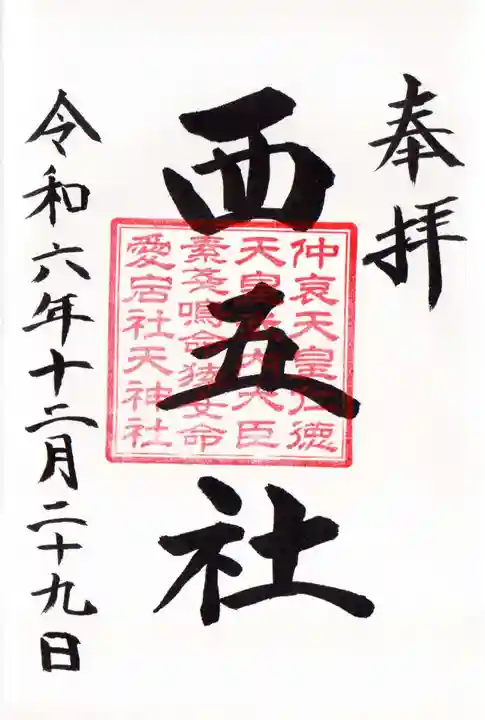 奉拝
西五社
仲哀天皇仁徳
天皇武内大臣
素戔鳴命猿女命
愛宕社天神社
令和六年十二月二十九日